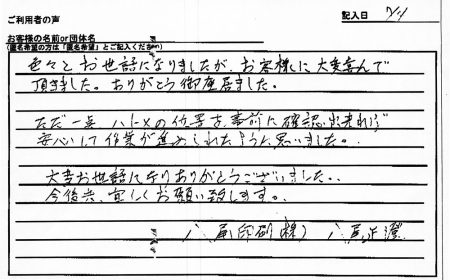 ご利用者の声
記入日 7/11
お客様の名前or団体名
(匿名希望の方は「匿名希望」とご記入ください)
色々とお世話になりましたが、お客様に大変喜んで
頂きました。ありがとう御座居ました。
ただ一点 ハトメの位置を事前に確認出来れば
安心して作業が進められたように思いました。
大変お世話になりありがとうございました。
今後共、宜しくお願い致します。
八尾印刷(株) 八尾